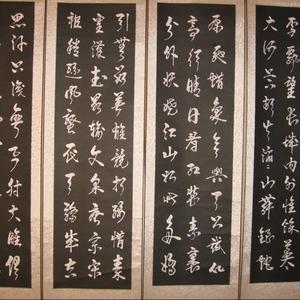 雪飄望長城內外惟餘莽
大河上下頓失滔滔山舞銀蛇
原馳蠟象欲與天公試比
高須晴日看紅裝素裹
分外妖嬈江山如此多嬌
引無數英雄競折腰惜秦
皇漢武略輸文采唐宗宋
祖稍遜風騷一代天驕成吉
思汗只識彎弓射大雕俱